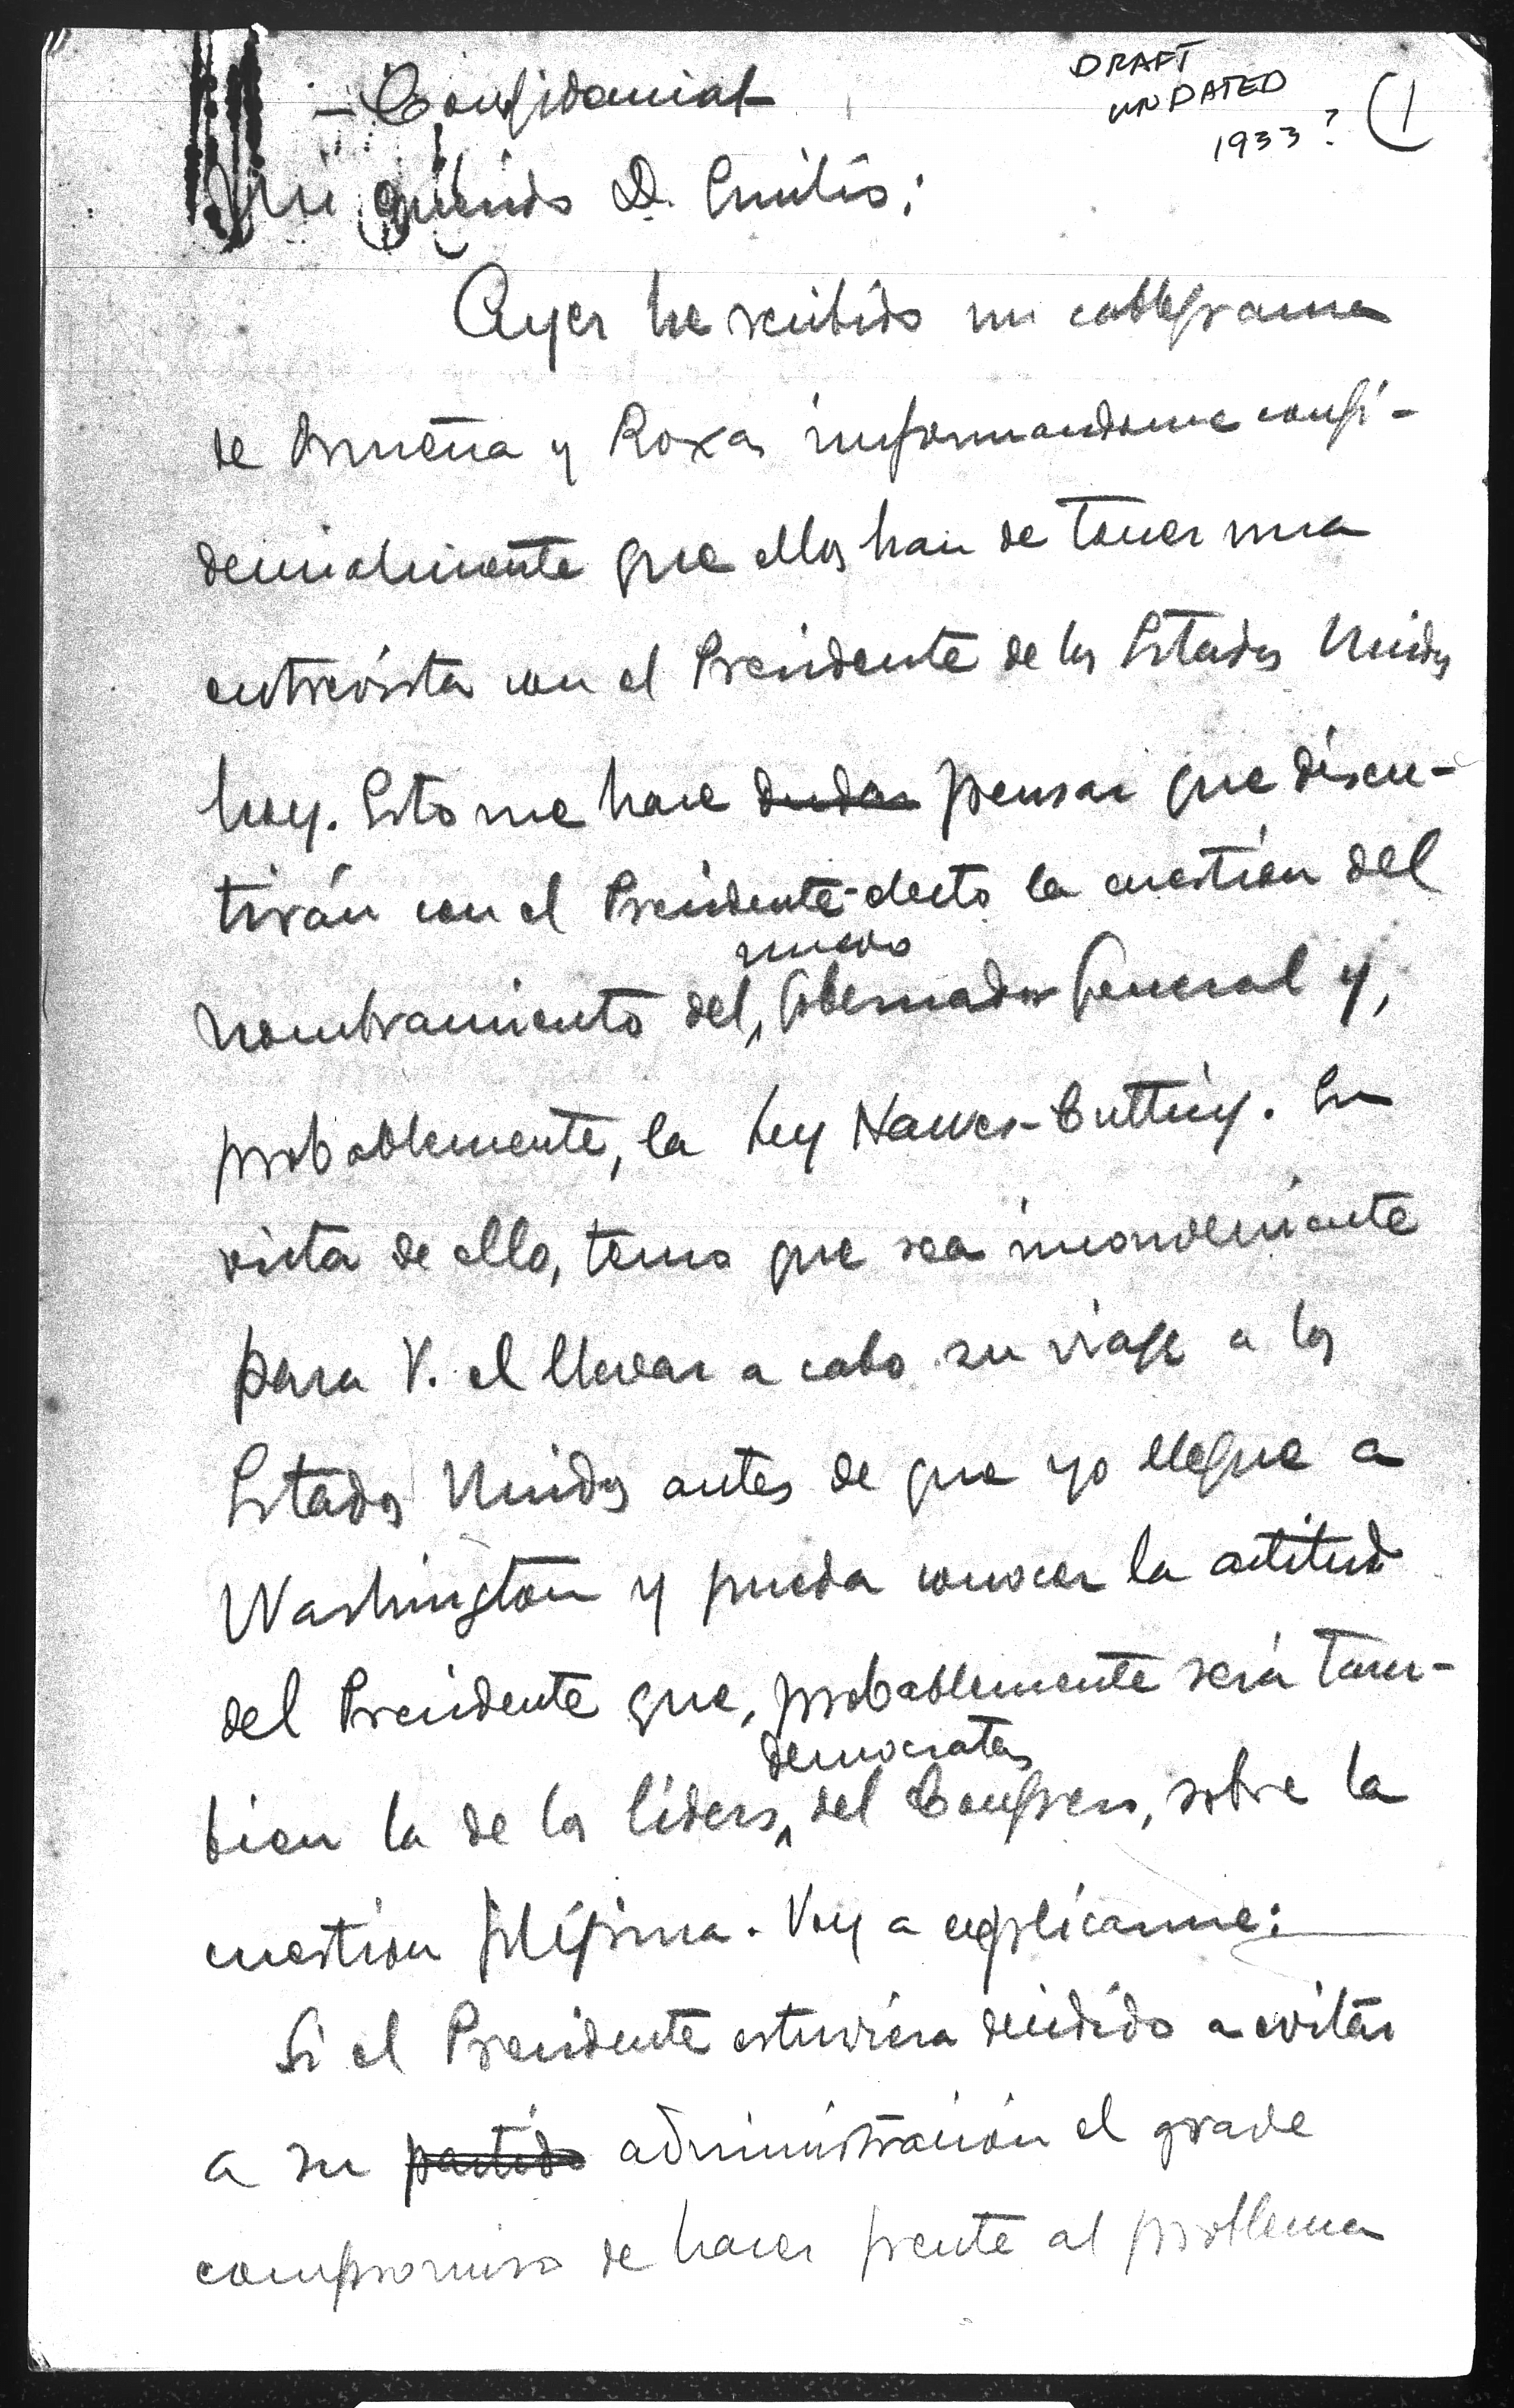 DRAFT
UNDATED
1933? (1
- Confidencial -
Mi querido D. Emilio:
Ayer he recibido un cablegrama
de Osmeña y Roxas informandome confi-
dencialmente que ellos han de tener una
entrevista con el Presidente de los Estados Unidos
hoy. Esto me hace dudar pensar que discu-
tirán con el Presidente-electo la cuestión del
nuevo
nombramiento del Gobernador General y,
probablemente, la Ley Hawes-Cutting. En
vista de ello, temo que sea inconveniente
para V. el llevar a cabo su viaje a los
Estados Unidos antes de que yo llegue a
Washington y pueda conocer la actitud
del Presidente que, probablemente será tam-
democratas
bien la de los líders del Congreso, sobre la
cuestion filipina. Voy a explicarme:
Si el Presidente estuviera decidido a evitar
a su partido administración el grave
compromiso de hacer frente al problema